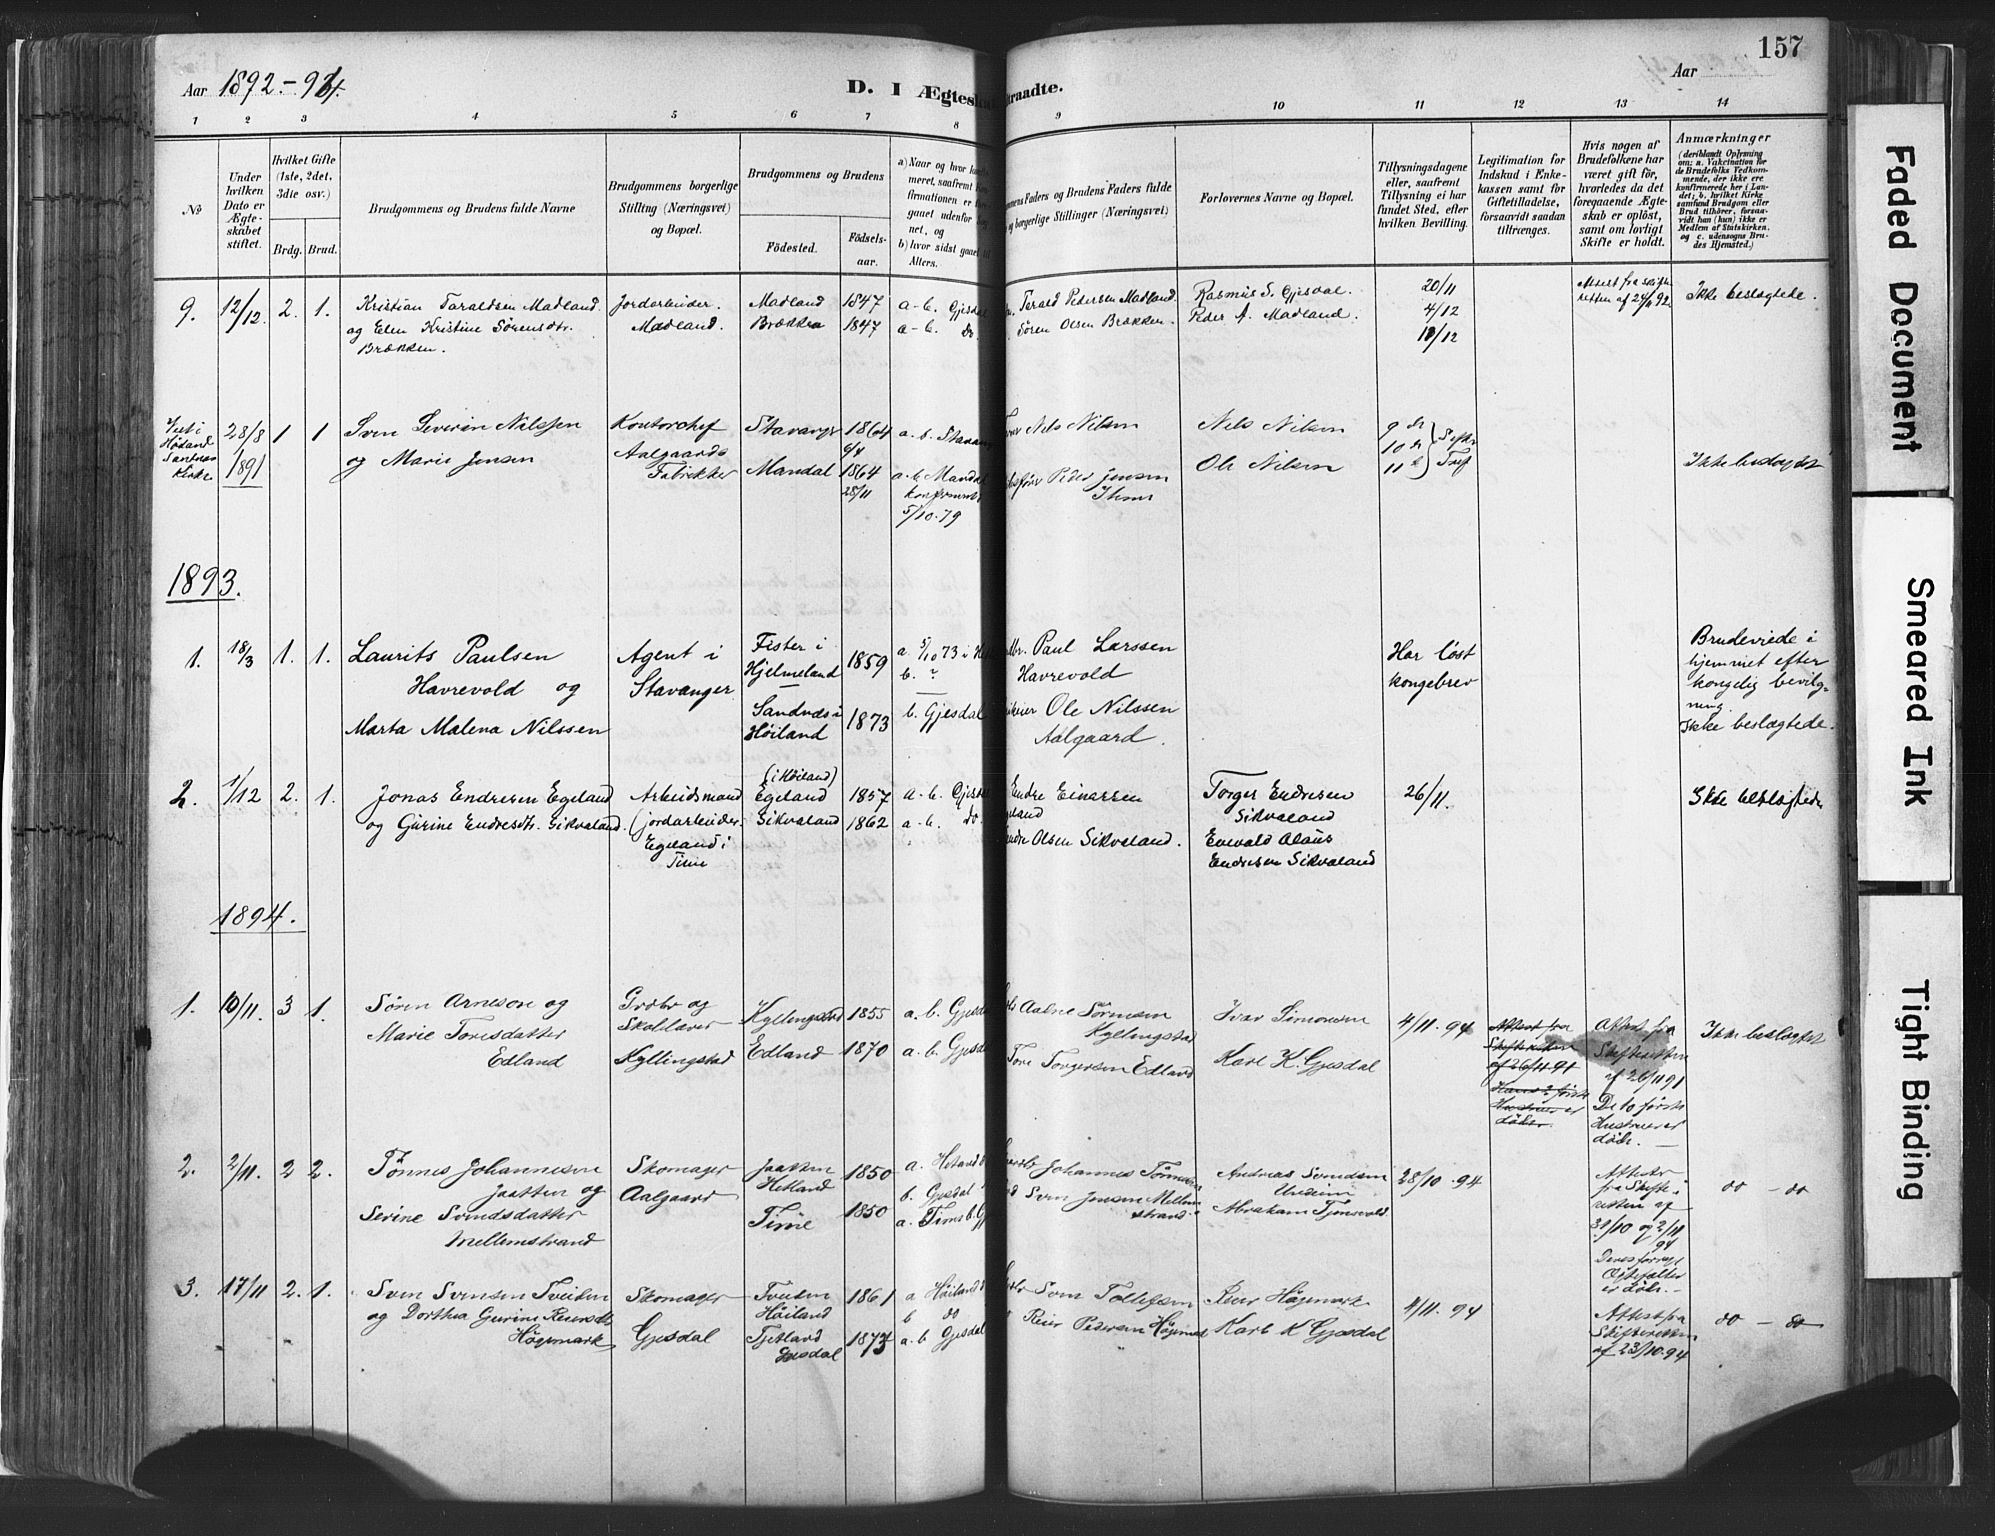 157
Aar 1892.-94.
D. I Ægtesk
traadte.
Aar
1 2 3 4 5 6 7 8 9 10 11 12 13 14
No
Under
hvilken
Dato er
Ægte-
skabet
stiftet.
Hvilket Gifte
(1ste, 2det,
3die osv.)
Brdg. Brud.
Brudgommens og Brudens fulde Navne
Brudgommens borgerlige
Stilling (Næringsvei)
og Bopæl.
Brudgommens og Brudens
Fødested.
Fødsels-
aar.
a) Naar og hvor
meret, saafremt
firmationen er
gaaet udenfor
net, og
b) hvor sidst gaaet til
Alters.
mmens Faders og Brudens Faders fulde
og borgerlige Stillinger (Næringsvei)
Forlovernes Navne og Bopæl.
Tillysningsdagene
eller, saafremt
Tillysning ei har
fundet Sted, efter
hvilken Bevilling.
Legitimation for
Indskud i Enke-
kassen samt for
Giftetilladelse,
forsaavidt saadan
tiltrænges.
Hvis nogen af
Brudefolkene har
været gift før,
hvorledes da det
foregaaende Ægte-
skab er opløst,
samt om lovligt
Skifte er holdt.
Anmærkninger
(deriblandt Oplysning
om: a. Vakcination for
de Brudefolks Vedkom-
mende, der ikke ere
konfirmerede her i Lan-
det; b. hvilket Kirke-
samfund Brudgom eller
Brud tilhører, forsaa-
vidt han (hun) ikke er
Medlem af Statskirken,
og c. udensogns Bru-
des Hjemsted.)
9. 12/12. 2. 1.
Kristian Taraldsen Madland
og Elen Kristine Sørensdtr.
Brækken.
Jordarbeider.
Madland.
Madland 1847 a-b. Gjesdal
Brækken 1847 a-b. do
Tarald Pedersen Madland.
Søren Olsen Brækken.
Rasmus S. Gjesdal.
Peder A. Madland.
20/11
4/12
11/12
Attest fra Skifte-
retten af
Ikke beslægtede.
Viet i
Høiland
Kirke
28/8
1891
1 1
Sven Severin Nilssen
og Marie Jensen
Kontorchef
Aalgaards
Fabrikker
Stavanger 1864
Mandal 1864
28/11
a-b. Stavang
a-b. Mandal
konfirmeret
5/10-79
Nels Nilsen
Peder Jensen
Nels Nilsen
Ole Nilsen
9de
10de
11te
Ikke beslægtet
1893.
1. 18/3 1. 1.
Laurits Paulsen
Havrevold og
Marta Malena Nilssen
Agent i
Stavanger
Fister i
Hjelmeland 1859
Sandnes i
Høiland 1873
a 5/10 73 i
b. ?
b. Gjesdal
Paul Larssen
Havrevold
Ole Nilssen
Aalgaard.
Har løst
kongebrev
Brudeviede i
hjemmet efter
kongelig bevilg-
ning.
Ikke beslægtede.
2. 1/12 2. 1.
Jonas Endresen Egeland
og Gurine Endresdtr. Sikvaland.
Arbeidsmand
(jordarbeider.
Egeland i
Time
(i Høiland)
Egeland 1857 a-b. Gjesd
Sikvaland 1862 a-b. do.
Endre Einarsen
geland
Endre Olsen Sikvaland.
Torger Endresen
Sikvaland
Enevald Olaus
Endresen Sikvaland
26/11.
Ikke beslægtede
1894.
1. 10/11. 3 1.
Søren Arnesen og
Marie Toresdatter
Edland
Grdbr og
Skollærer
Kyllingstad
Kyllingstad 1855 a.b. Gjesd
Edland 1870 a.b. Gjesdal
Aadne Sørensen
Kyllingstad
Tore Torgersen Edland
Ivar Simonsen
Karl K. Gjesdal
4/11. 94
Attest fra
Skifteretten
af 26/11 91
Attest fra
Skifteretten
af 26/11 91
De to første
Hustruer er
døde. —
Ikke beslægtet
2. 2/11. 2 2.
Tønnes Johannesen
Jaatten og
Serine Svendsdatter
Mellemstrand
Skomager
Aalgaard
Jaatten
Hetland 1850
Time 1850
a. Hetland
b. Gjesdal
a. Time b. Gj
Johannes Tønnesen
Sven Jensen Mellem
strand
Andreas Svendsen
Abraham Tjensvold
28/10. 94
Attester
fra Skifte-
retten af
31/10 og 2/11
94
Deres forrige
Ægtefæller
er døde.
do — do
3. 17/11 2. 1.
Sven Svensen Tveiten
og Dorthea Gurine Reiersdtr
Høgemark
Skomager
Gjesdal
Tveiten 1861
Høiland
Tjetland 1873
Gjesdal
a Høiland
b do
a.b Gjesdal
Sven Tollefsen
Reier Pedersen Høgemark
Reier Høgemark
Karl K Gjesdal
4/11. 94
Attest fra
Skifteretten
af 23/10.94
do — do
Faded Document
Smeared Ink
Tight Binding